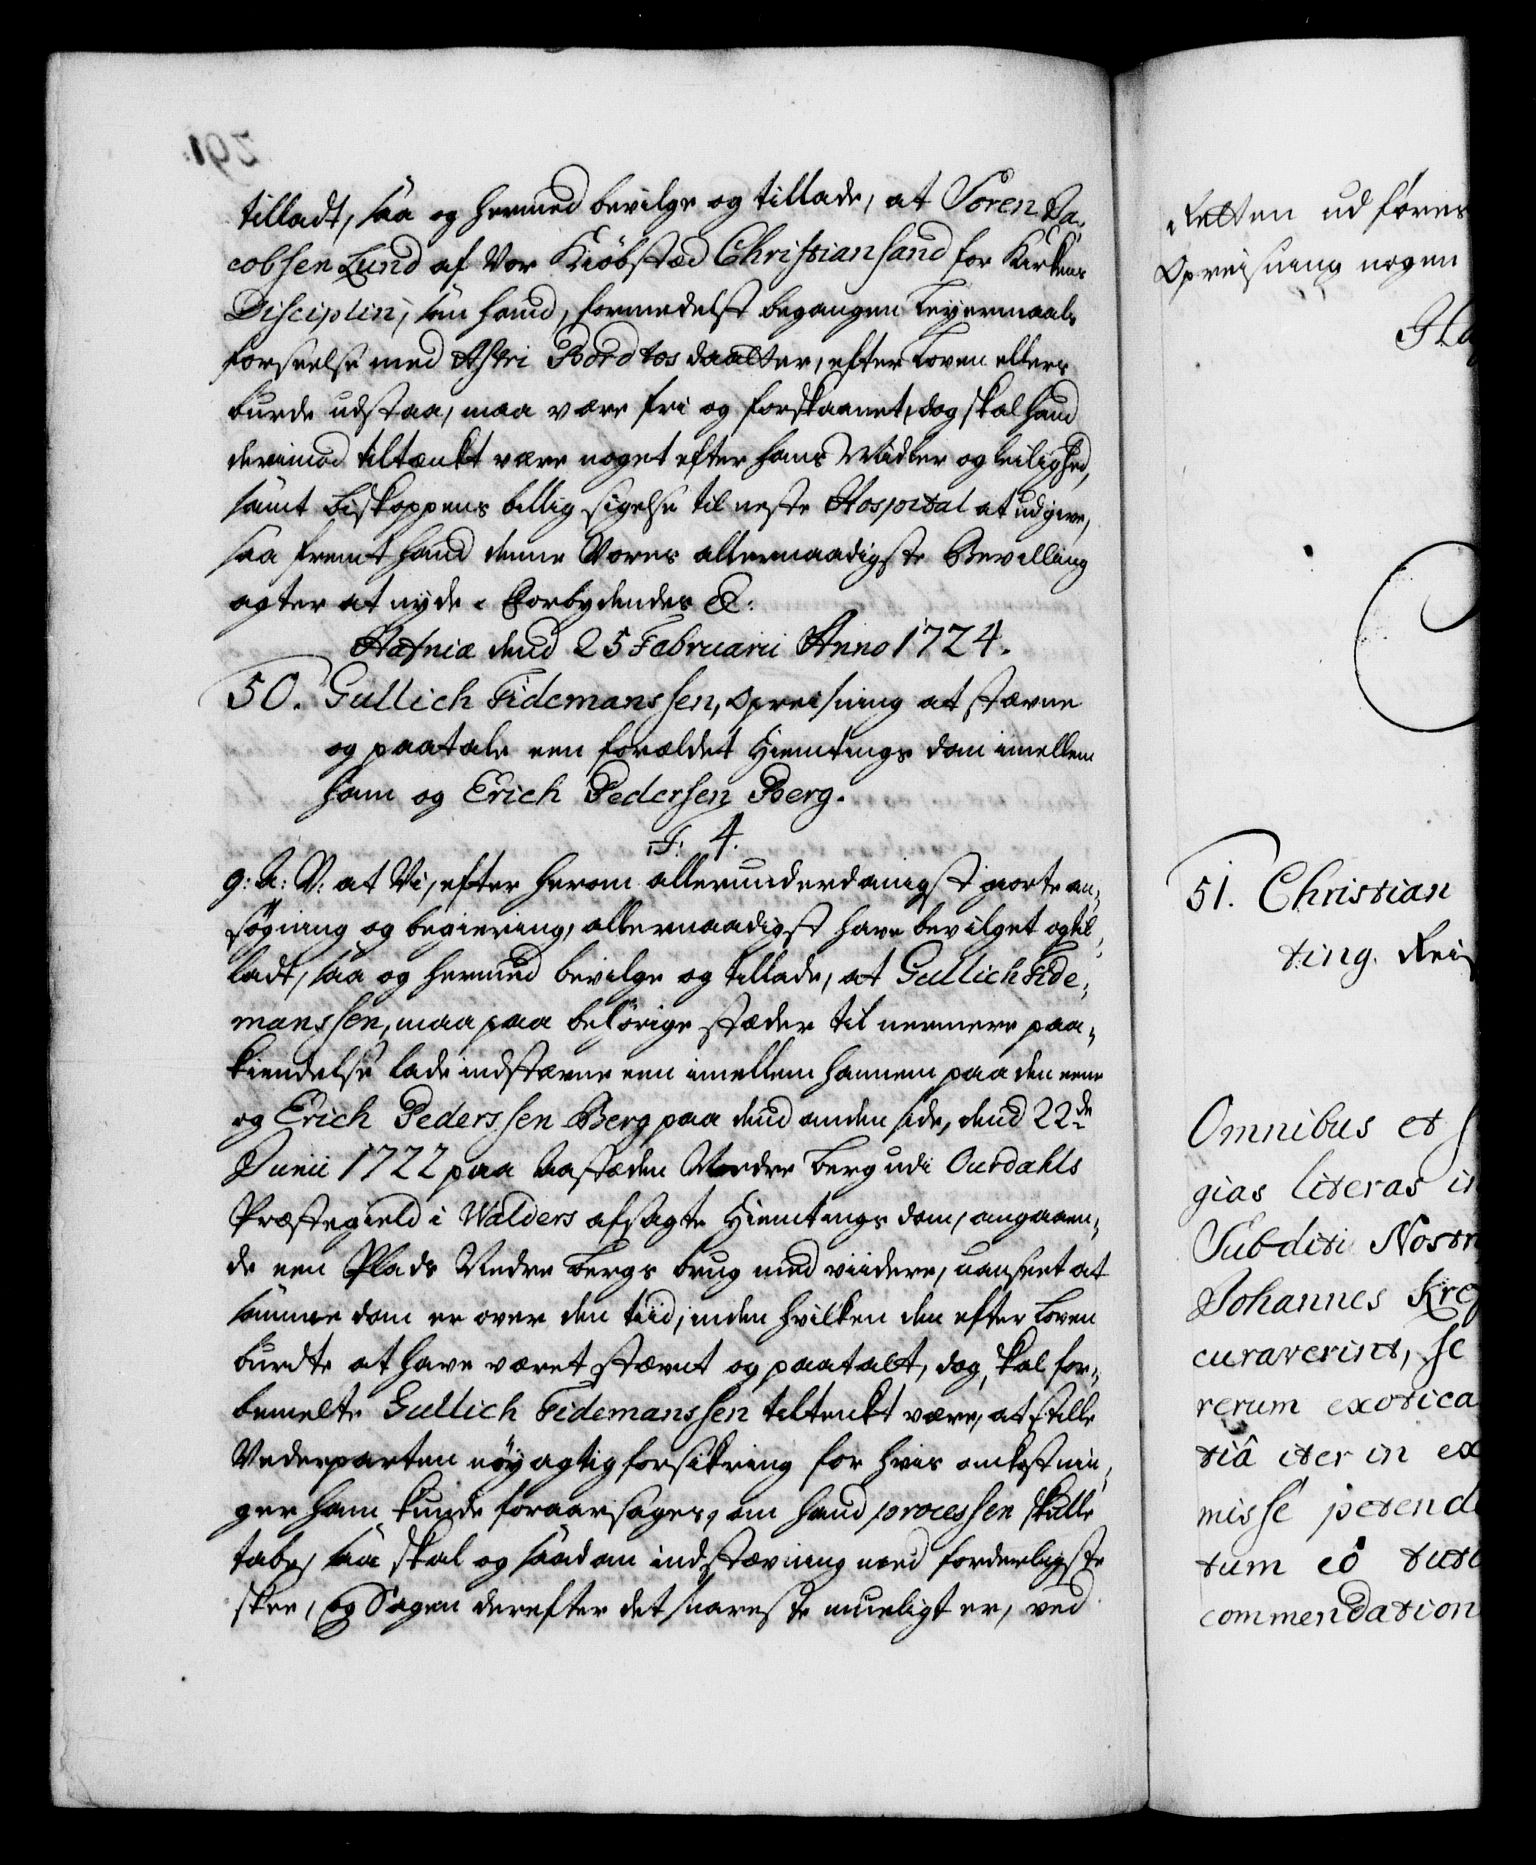 tilladt, saa og hermed bevilge og tillade, at Sören Ja,
cobsen Lund af Vor Kiöbstæd Christiansand for Kirkens
Disciplin, som hand, formedelst begangen Leyermaals
forseelse med Astri Bordtosdaatter, efter Loven ellers
burde udstaa, maa være fri og forskaanet, dog skal hand
derimod tiltænkt være noget efter hans Midler og leilighed,
samt Biskoppens billig sigelse til neste Hospital at udgive,
saa fremt hand denne Vores allernaadigste Bevilling
agter at nyde. Forbydendes &:
Hafniæ dend 25 Februarii Anno 1724.
50. Gullich Tidemanssen, Opreisning at stævne
og paatale een forældet Hiemtings dom imellem
ham og Erich Pedersen Berg.
F. 4.
g: A: V: at Vi, efter herom allerunderdanigst giorte an,
søgning og begiering, allernaadigst have bevilget og til,
ladt, saa og hermed bevilge og tillade, at Gullich Tide,
manssen, maa paa behörige stæder til nermere paa,
kiendelse lade indstævne een imellem hannem paa den eene
og Erich Pederssen Berg paa dend anden side, dend 22de
Junii 1722 paa Aastæden Nedre Berg udi Ourdahls
Præstegield i Walders afsagte Hiemtings dom, angaaen,
de een Plads Nedre Bergs brug med viidere, uanseet at
samme dom er over den tiid, inden hvilken den efter Loven
burdte at have været stævnt og paatalt, dog skal for,
bemelte Gullich Tidemanssen tiltenkt være, at stille
Vederparten nöyagtig forsikring for hvis omkostnin,
ger ham kunde foraarsages, om hand processen skulle
tabe, saa skal og saadan indstævning med forderligste
skee, og Sagen derefter det snareste mueligt er, ved
Retten udføres
Opreisning nogen
51. Christian
ting. Reis
Omnibus et
gias literas in
Subditi Nostr
Johannes
curaverint, se
rerum exotica
tiâ iter in ex
misse petend
tum eò
commendation